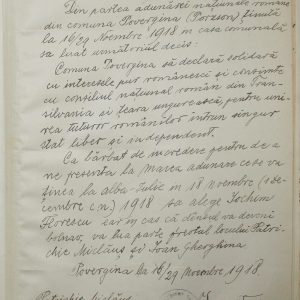 Din partea adunărei naționale române
din comuna Povergina (Porzson) ținută
la 16/29 Noembre 1918 în casa comunală
sa luat următoriul decis:
Comuna Povergina să declară solidară
cu interesele pur românesci și consimte
cu consiliul național român din Tran-
silvania și țeara ungurească, pentru uni-
rea tuturor românilor intrun singur
stat liber și independent.
Ca bărbat de incredere pentru de a
ne presenta la Marea adunare ce se va
ținea la alba-Iulie în 18 Noembre (1 de-
cembre c.n.) 1918 sa alege Iochim
Florescu iar în cas că dânsul va deveni
bolnav, va lua parte preotul locului Patri-
chie Miclăuș și Ioan Gherghina.
Povergina la 16/29 Noembre 1918.
Miclăuș